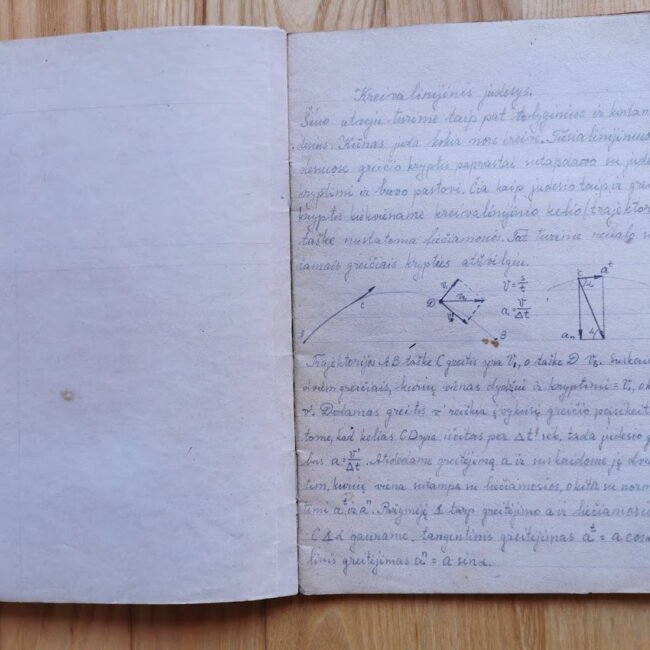 Kreivalinijinis judesys.
Šiuo atveju turime taip pat tolyginius ir kintam
desius. Kūnas juda kokia nors kreive. Tiesialinijiniuo
desiuose greičio kryptis paprastai sutapdavo su jude
kryptimi ir buvo pastovi. Čia kaip judesio taip ir grei
kryptis kiekviename kreivalinijinio kelio /trajektori
taške nustatoma liečiamosios. Tat turime reikalo su
iamais greičiais krypties atžvilgiu.
A C D v₁ v₂ v' B
v = s/t
a = v/Δt
C aᵗ α aₙ a
Trajektorijos AB taške C greitis yra v₁, o taške D v₂.
dviem greičiais, kurių vienas dydžiu ir kryptimi = v₁, o k
v'. Dedamas greitis v' reiškia įvykusį greičio pasikeiti
tome, kad kelias CD yra išeitas per Δt' sek, tada judesio
bus a = v'/Δt. Atidedame greitėjimą a ir suskaidome jį dvi
tim, kurių viena sutampa su liečiamosios, o kita su norm
timi aᵗ ir aⁿ. Pažymėję ∆ tarp greitėjimo a ir liečiamosi
C ∆ α gauname, tangentinis greitėjimas aᵗ = a cos
linis greitėjimas aⁿ = a sinα.